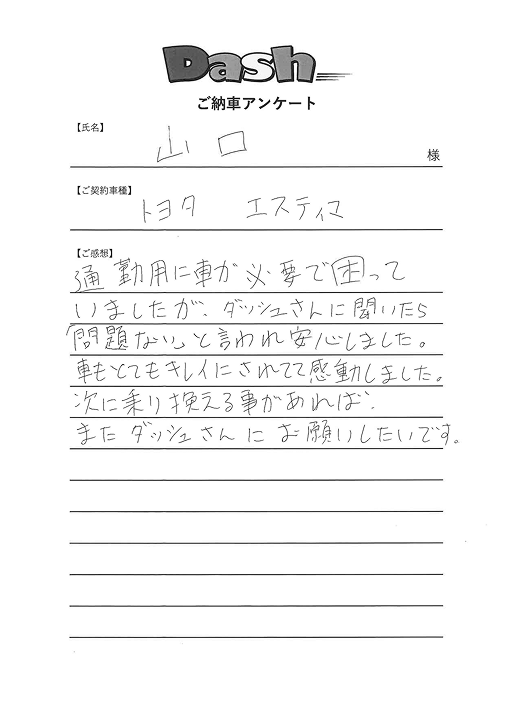 Dash
ご納車アンケート
【氏名】
山口
様
【ご契約車種】
トヨタ エスティマ
【ご感想】
通勤用に車が必要で困って
いましたが、ダッシュさんに聞いたら
「問題ない」と言われ安心しました。
車もとてもキレイにされてて感動しました。
次に乗り換える事があれば、
またダッシュさんにお願いしたいです。